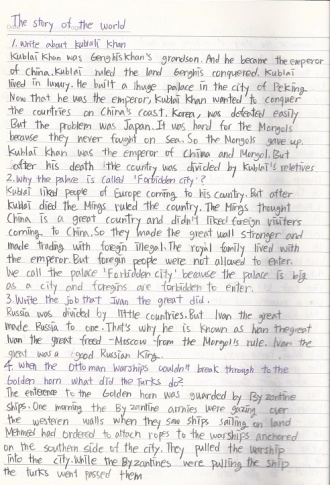 The story of the world
1. Write about kublai Khan
Kublai Khan was Genghis Khan's grandson. And he became the emperor
of China. Kublai ruled the land Genghis conquered. Kublai
lived in luxury. He built a huge pallace in the city of Peking.
Now that he was the emperor, Kublai Khan wanted to conquer
the countries on China's coast. Korea, was defeated easily
But the problem was Japan. It was hard for the Mongols
because they never fought on Sea. So the Mongols gave up.
Kublai Khan was the emperor of China and Mongol. But
after his death the country was divided by Kublai's reletives
2. Why the palace is called 'Forbidden city'?
Kublai liked people of Europe coming to his country. But after
kublai died the Mings ruled the country. The Mings thought
China is a great country and didn't liked foreign visiters
coming to China. So they made the great wall stronger and
made trading with forgin illegal. The royal family lived with
the emperor. But forgin people were not allowed to enter.
We call the palace 'Forbidden city' because the palace is big
as a city and forgins are forbidden to enter.
3. Write the job that Ivan the great did.
Russia was divided by little countries. But Ivan the great
made Russia to one. That's why he is known as Ivan the great
Ivan the great freed Moscow from the Mongol's rule. Ivan the
great was a good Russian King.
4. when the Ottoman warships couldn't break through to the
Golden horn what did the turks do?
The enterence to the Golden horn was guarded by Byzantine
Ships. One morning the Byzantine armies were gazing over
the western walls when they saw ships sailing on land
Mehmed had ordered to attach ropes to the warships anchored
on the southern side of the city. They pulled the warship
into the city. While the Byzantines were pulling the ship
the turks went passed them